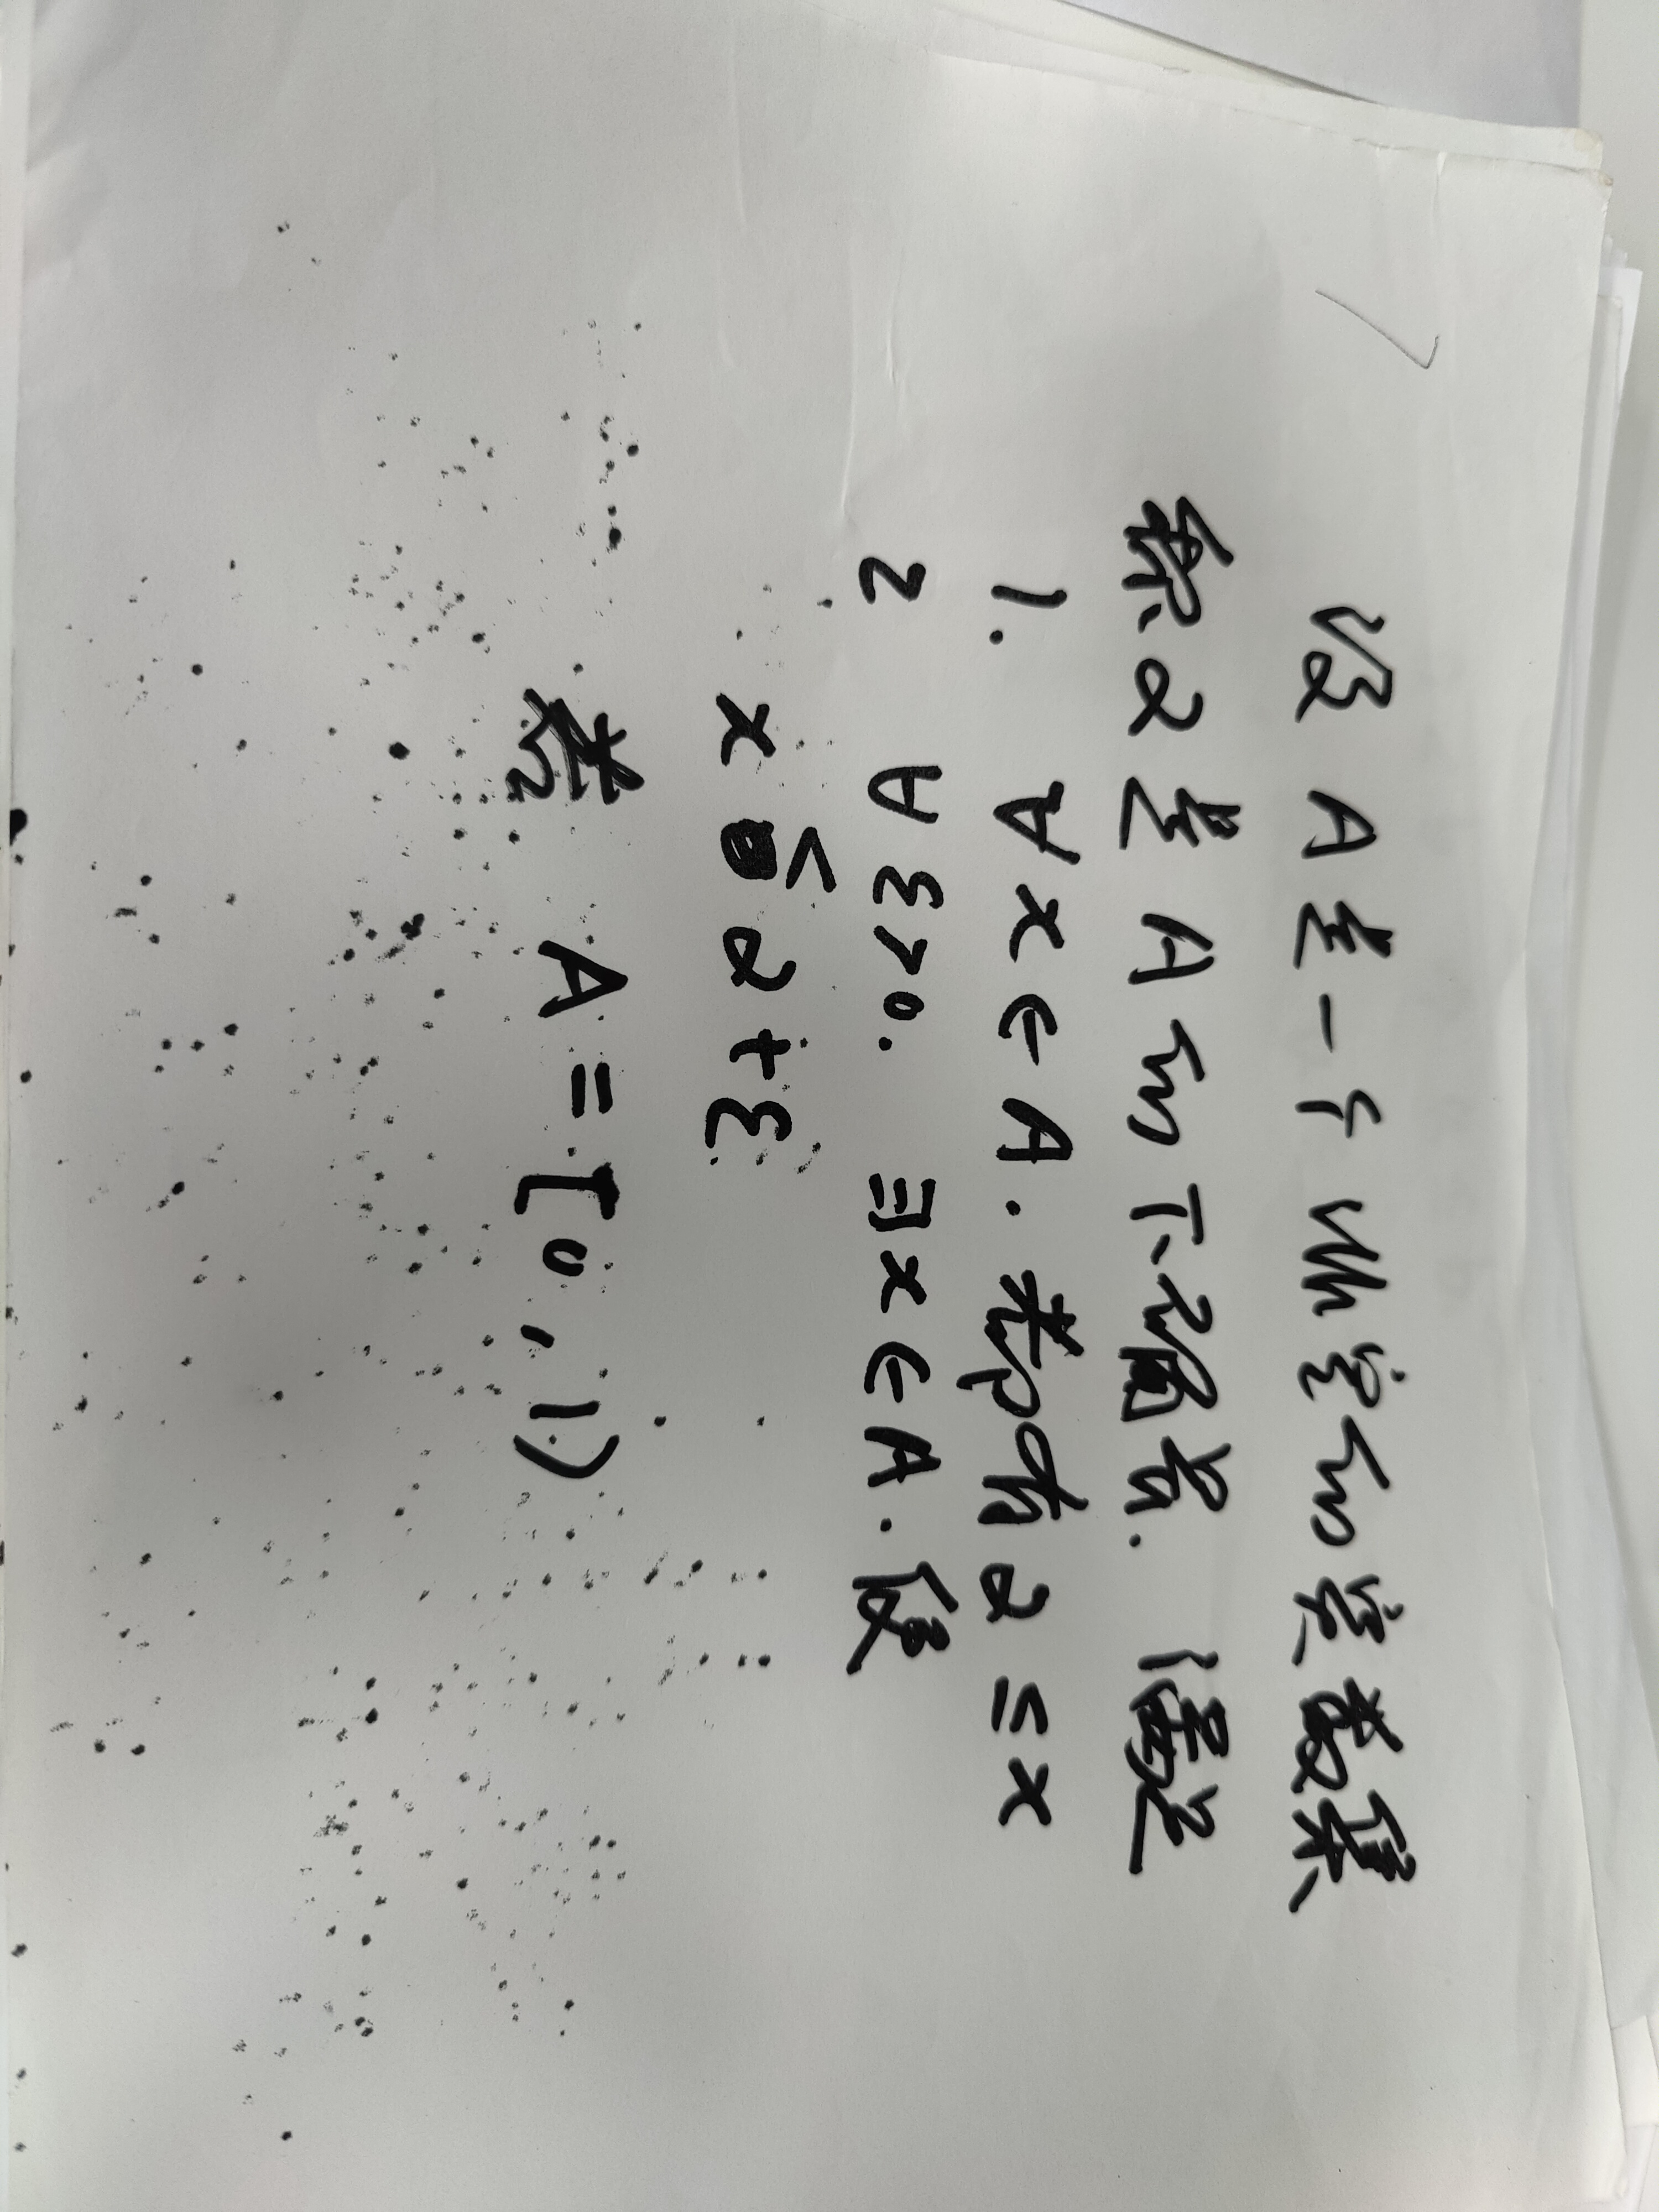 设 A 是一个非空的实数集
称 α 是 A 的下确界. 满足
1. ∀x∈A. 都有 α ≤ x
2 ∀ε>0. ∃x∈A. 使
x < α+ε
考虑 A = [0, 1)